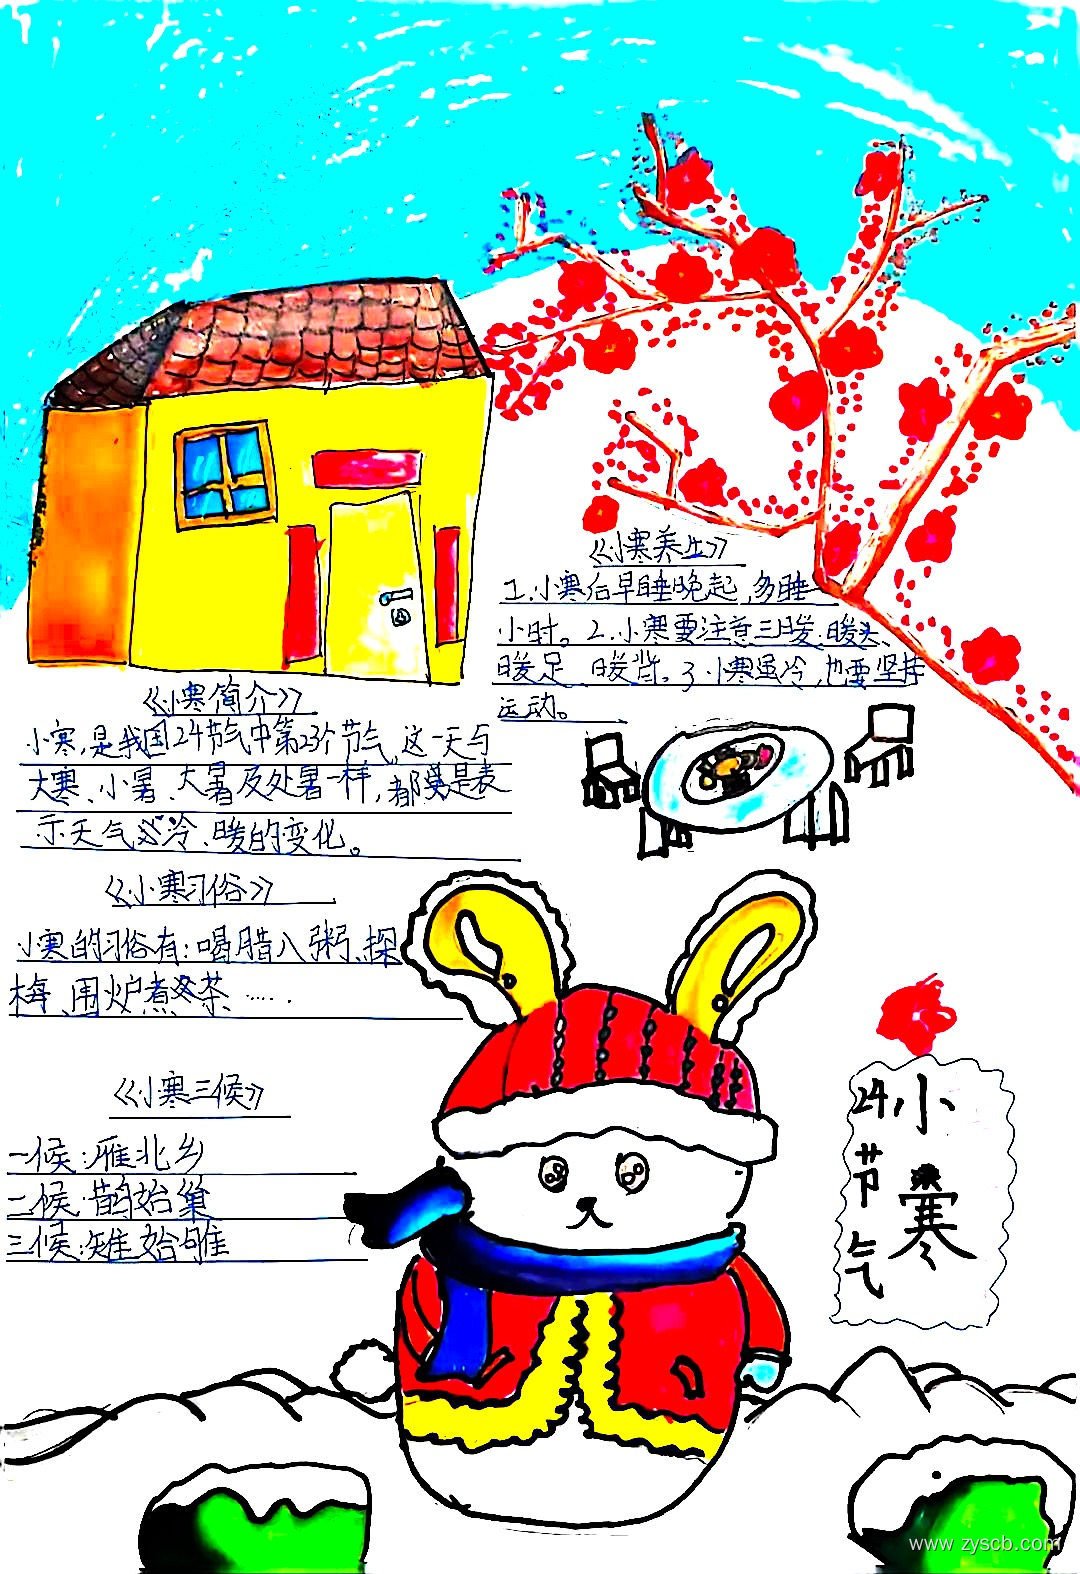 《小寒养生》
1.小寒后早睡晚起,多睡一
小时。2.小寒要注意三暖:暖头、
暖足、暖背。3.小寒虽冷,也要坚持
运动。
《小寒简介》
小寒,是我国24节气中第23个节气,这一天与
大寒、小暑、大暑及处暑一样,都是表
示天气冷、暖的变化。
《小寒习俗》
小寒的习俗有:喝腊八粥、探
梅、围炉煮茶……
《小寒三候》
一候:雁北乡
二候:鹊始巢
三候:雉始雊
小寒
24节气
www.zyscb.com